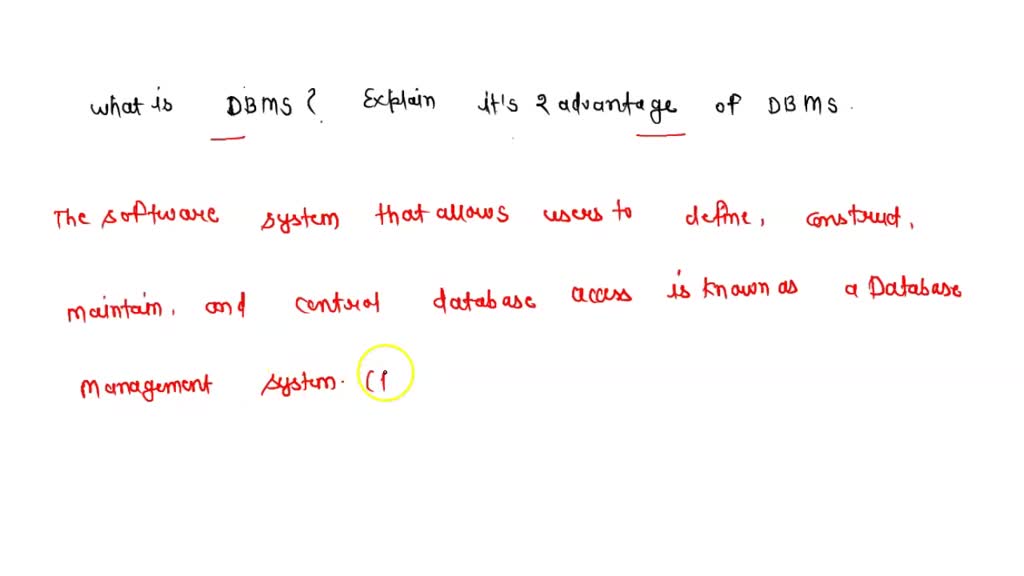 what is DBMS? Explain it's 2 advantage of DBMS.
The software system that allows users to define, construct,
maintain, and control database access is known as a Database
Management system. (